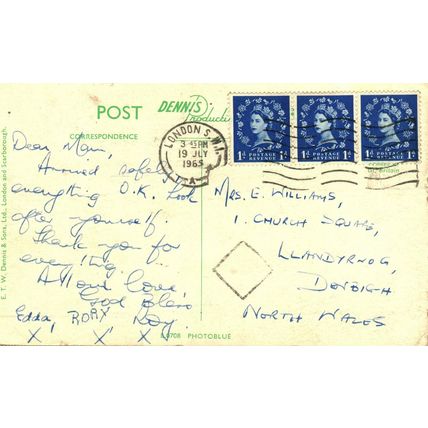 POST
DENNIS
Productions
CORRESPONDENCE
LONDON S.W.1.
3-45PM
19 JLY
1965
1D POSTAGE REVENUE 1D
1D POSTAGE REVENUE 1D
1D POSTAGE REVENUE 1D
Britain
Dear Mam,
Arrived safely
everything O.K. Look
after yourself.
Thank you for
everything.
All our love,
God bless
Edda, RORY Roy.
X X X
MRS. E. WILLIAMS,
1. CHURCH SQUARE,
LLANDYRNOG,
DENBIGH
NORTH WALES
E. T. W. Dennis & Sons, Ltd., London and Scarborough.
PHOTOBLUE